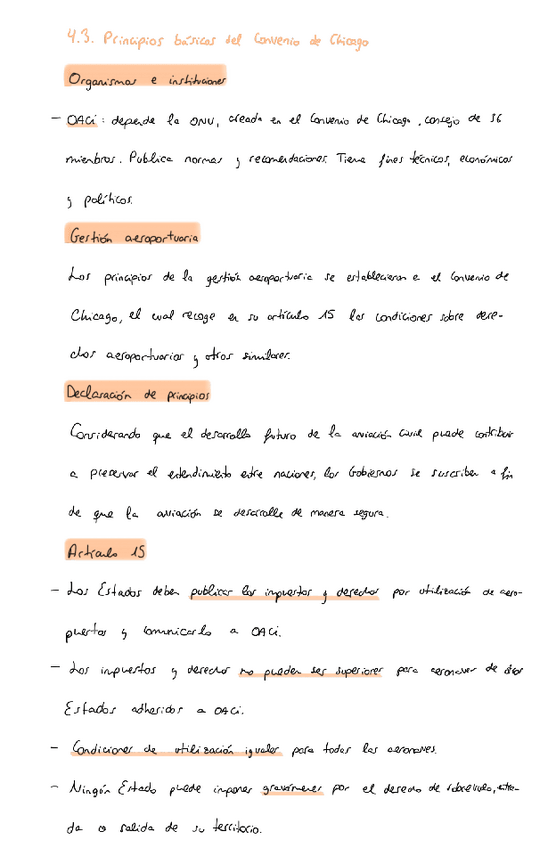 4.3. Principios básicos del Convenio de Chicago
Organismos e instituciones
- OACI: depende la ONU, creada en el Convenio de Chicago, consejo de 36
miembros. Publica normas y recomendaciones. Tiene fines técnicos, económicos
y políticos.
Gestión aeroportuaria
Los principios de la gestión aeroportuaria se establecieron e el Convenio de
Chicago, el cual recoge en su artículo 15 las condiciones sobre dere-
chos aeroportuarios y otros similares.
Declaración de principios
Considerando que el desarrollo futuro de la aviación civil puede contribuir
a preservar el entendimiento entre naciones, los Gobiernos se suscriben a fin
de que la aviación se desarrolle de manera segura.
Artículo 15
- Los Estados deben publicar los impuestos y derechos por utilización de aero-
puertos y comunicarlo a OACI.
- Los impuestos y derechos no pueden ser superiores para aeronaves de otros
Estados adheridos a OACI.
- Condiciones de utilización iguales para todas las aeronaves.
- Ningún Estado puede imponer gravámenes por el derecho de sobrevuelo, entra-
da o salida de su territorio.